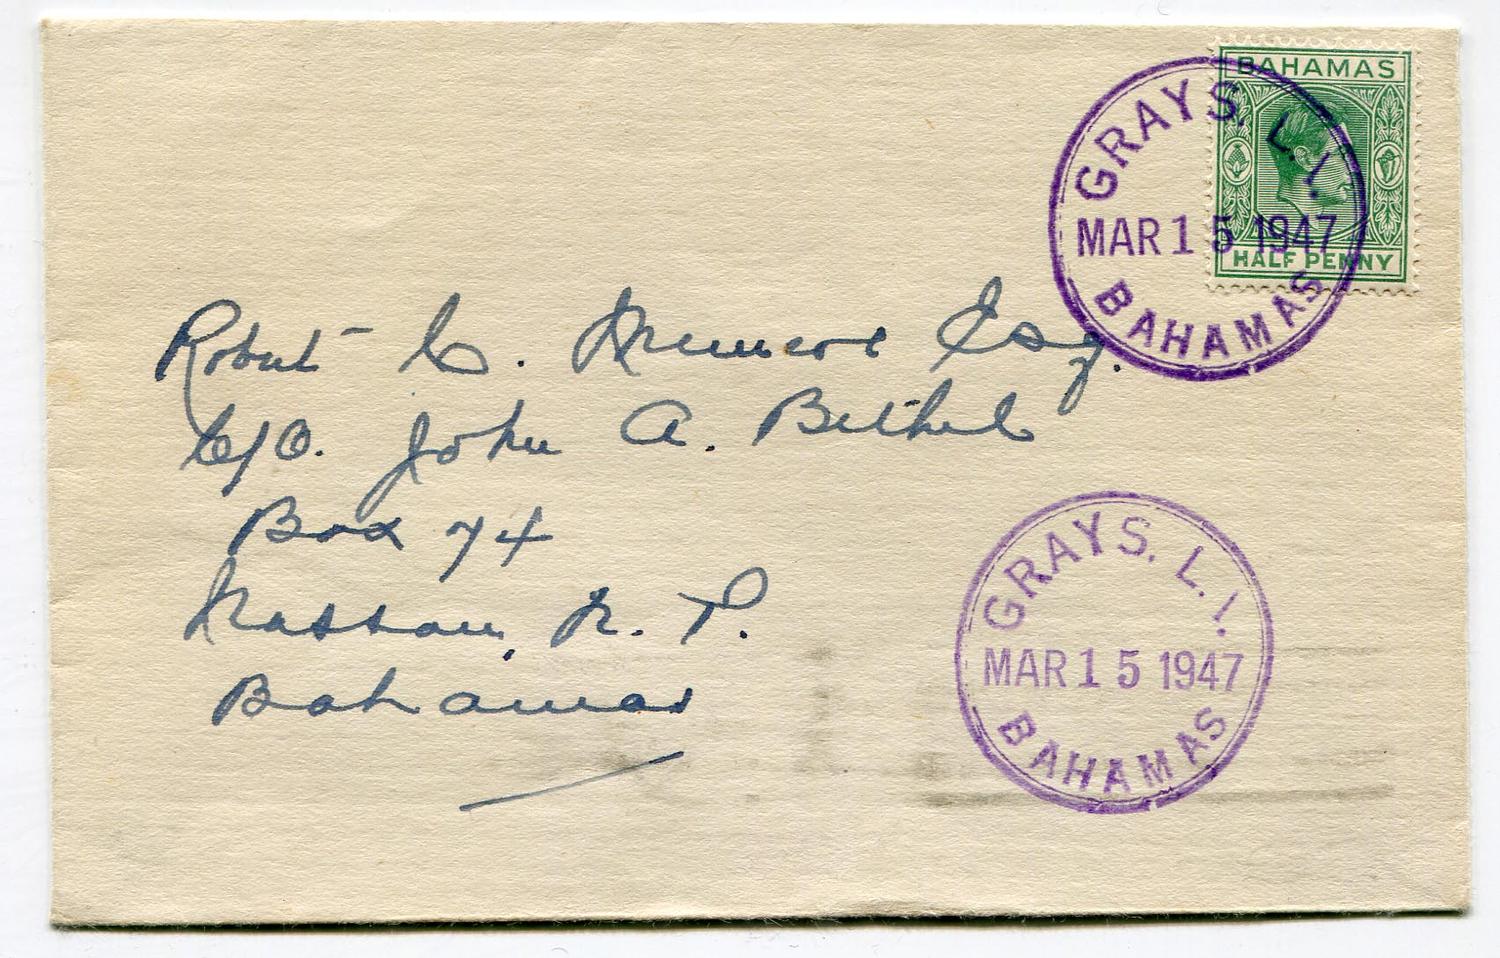 BAHAMAS
HALF PENNY
GRAYS. L. I.
MAR 15 1947
BAHAMAS
Robert C. Esq.
C/O. John A. Bethel
Box 74
Nassau, N. P.
Bahamas
GRAYS. L. I.
MAR 15 1947
BAHAMAS